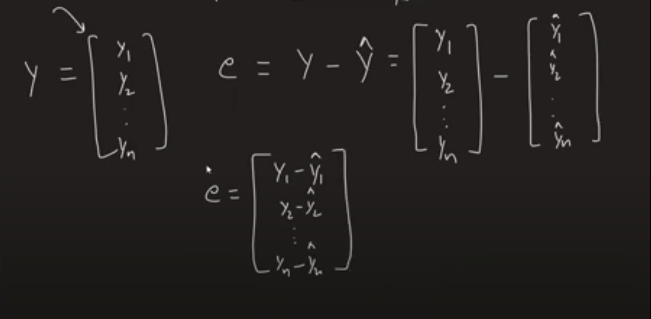 Y = [y₁ y₂ ⋮ yₙ]
e = Y - Ŷ = [y₁ y₂ ⋮ yₙ] - [ŷ₁ ŷ₂ ⋮ ŷₙ]
e = [y₁ - ŷ₁ y₂ - ŷ₂ ⋮ yₙ - ŷₙ]